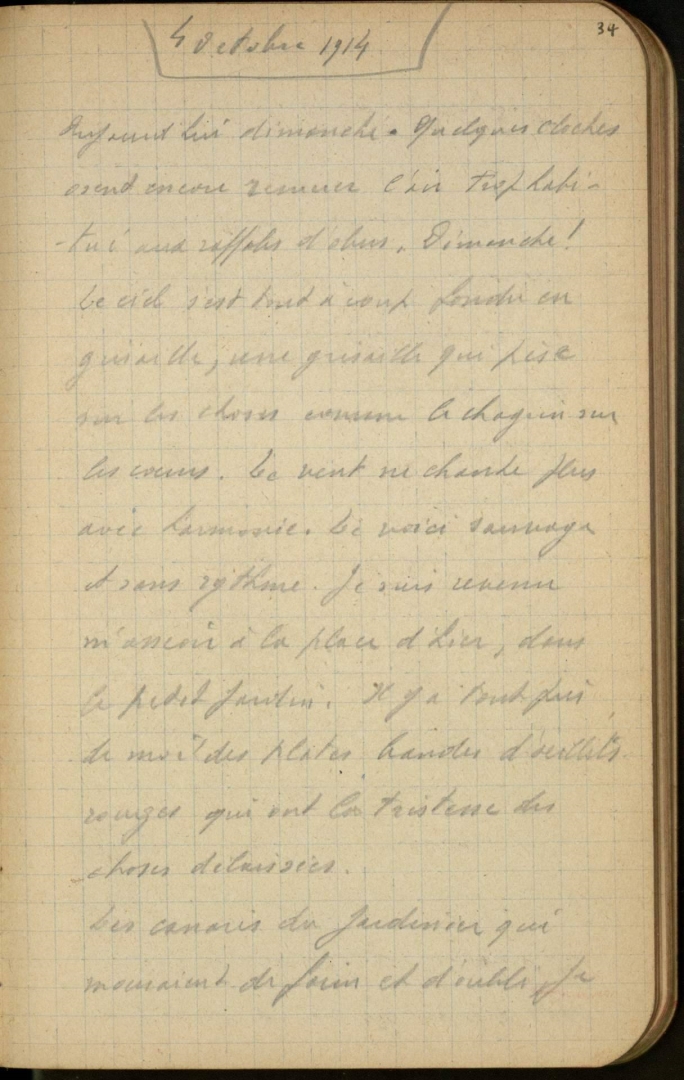 34
4 Octobre 1914
Aujourd'hui dimanche. Quelques cloches
osent encore remuer l'air trop habi-
-tué aux raffales d'obus. Dimanche!
Le ciel s'est tout à coup fondu en
grisaille, une grisaille qui pèse
sur les choses comme le chagrin sur
les cœurs. Le vent ne chante plus
avec harmonie. Le voici sauvage
et sans rythme. Je suis revenu
m'asseoir à la place d'hier, dans
le petit jardin. Il y a tout près
de moi des plates bandes d'œillets
rouges qui ont la tristesse des
choses délaissées.
Les canaris du jardinier qui
mouraient de faim et d'oubli, je